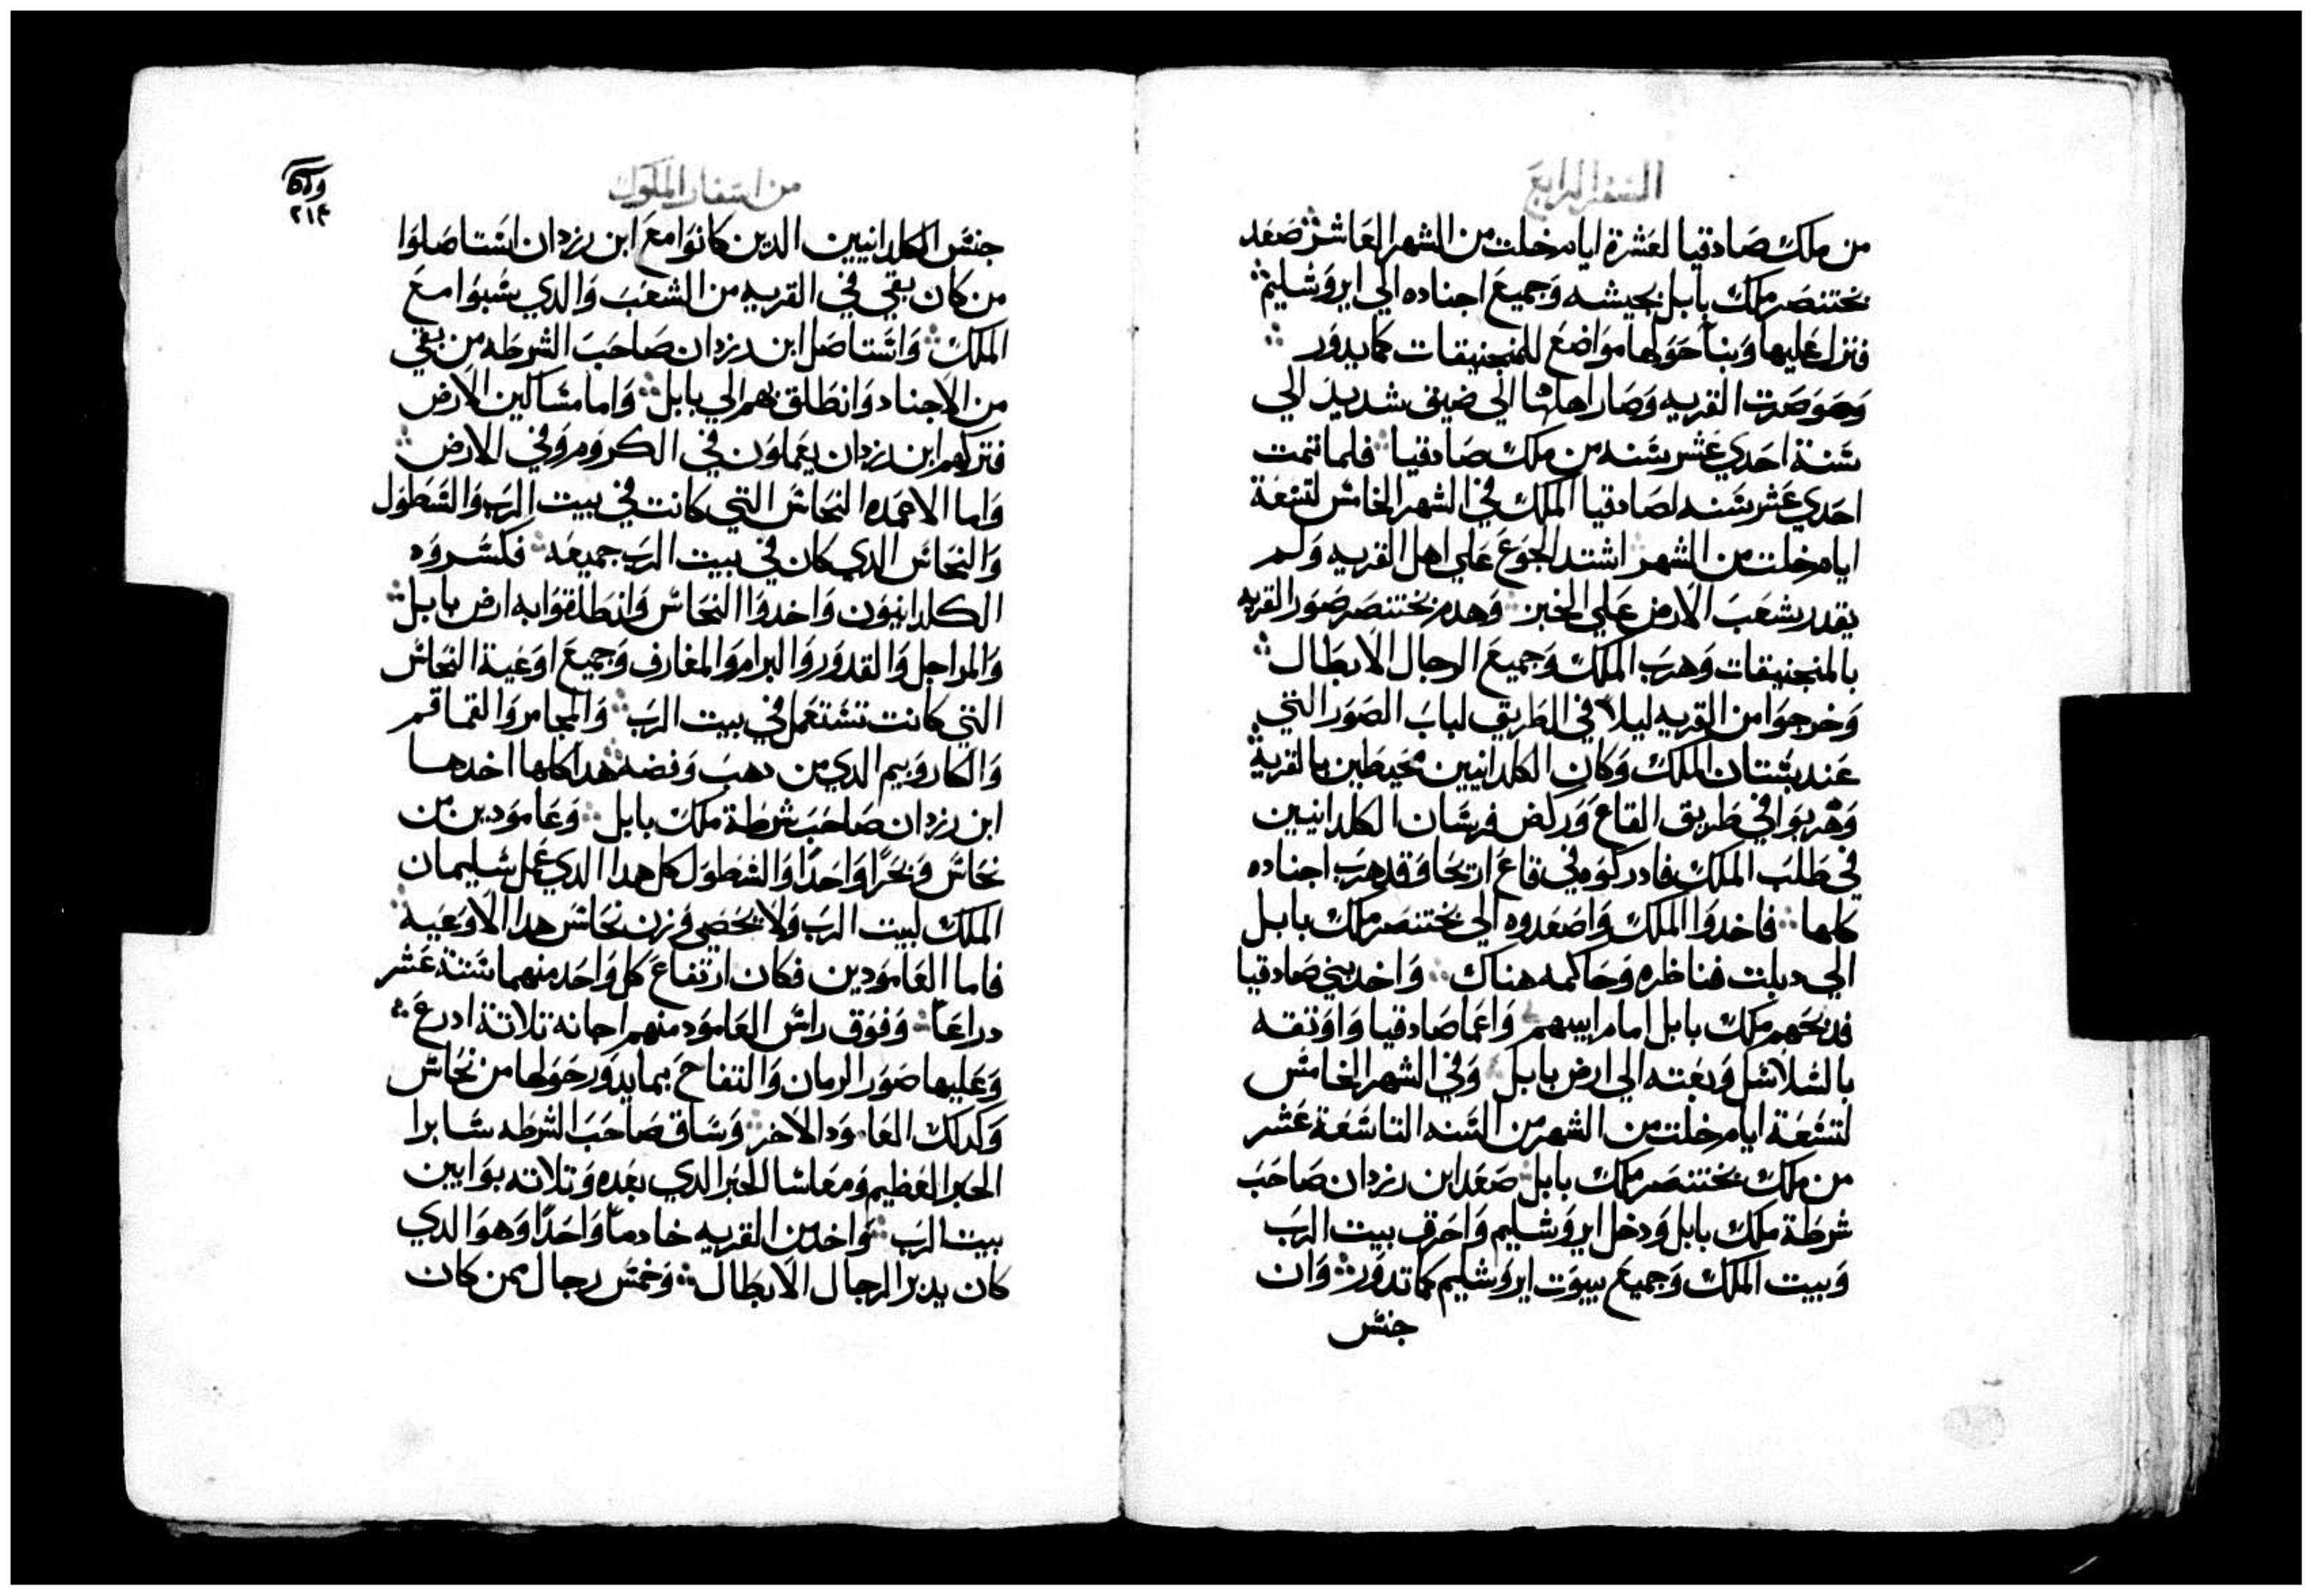 السفر الرابع
من ملك صادقيا لعشرة ايام خلت من الشهر العاشر صعد
بختنصر ملك بابل بجيشه وجميع اجناده الي ايروشليم
فنزل عليها وبنا حولها مواضع للمنجنيقات كما يدور
وحوصرت القريه وصار اهلها الي ضيق شديد الي
سنة احدي عشر سنه من ملك صادقيا فلما تمت
احدي عشر سنه لصادقيا الملك في الشهر الخامس لتسعة
ايام خلت من الشهر اشتد الجوع علي اهل القريه ولم
يقدر شعب الارض علي الخبز وهدم بختنصر صور القريه
بالمنجنيقات وهرب الملك وجميع الرجال الابطال
وخرجوا من القريه ليلا في الطريق لباب الصور التي
عند بستان الملك وكان الكلدانيين محيطين بالقرية
وهربوا في طريق القاع وركض فرسان الكلدانيين
في طلب الملك فادركوه في قاع اريحا وقد هرب اجناده
كلها فاخدوا الملك واصعدوه الي بختنصر ملك بابل
الي دبلت فناظره وحاكمه هناك واخد بني صادقيا
فدبحهم ملك بابل امام ابيهم واعما صادقيا واوتقه
بالسلاسل وبعته الي ارض بابل وفي الشهر الخامس
لتسعة ايام خلت من الشهر من السنه التاسعة عشر
من ملك بختنصر ملك بابل صعد ابن رزدان صاحب
شرطة ملك بابل ودخل ايروشليم واحرق بيت الرب
وبيت الملك وجميع بيوت ايروشليم كما تدور وان
جنس
من اسفار الملوك
٢١٤
جنس الكلدانيين الدين كانوا مع ابن رزدان استاصلوا
من كان بقي في القريه من الشعب والدي سبوا مع
الملك واستاصل ابن رزدان صاحب الشرطه من بقي
من الاجناد وانطلق بهم الي بابل واما مساكين الارض
فتركهم ابن رزدان يعملون في الكروم وفي الارض
واما الاعمده النحاس التي كانت في بيت الرب والسطول
والنحاس الدي كان في بيت الرب جميعه فكسروه
الكلدانيون واخدوا النحاس وانطلقوا به ارض بابل
والمراجل والقدور والبرام والمغارف وجميع اوعية النحاس
التي كانت تستعمل في بيت الرب والمجامر والقماقم
والكاروبيم الدي من دهب وفضه هدا كلها اخدها
ابن رزدان صاحب شرطة ملك بابل وعامودين من
نحاس وبحرا واحدا والسطول كل هدا الدي عمل سليمان
الملك لبيت الرب ولا يحصي وزن نحاس هدا الاوعيه
فاما العامودين فكان ارتفاع كل واحد منهما ستة عشر
دراعا وفوق راس العامود منهم اجانه تلاتة ادرع
وعليها صور الرمان والتفاح بما يدور حولها من نحاس
وكدلك العامود الاخر وساق صاحب الشرطه سابرا
الحبر العظيم ومعاسا الحبر الدي بعده وتلاته بوابين
بيت الرب واخد من القريه خادما واحدا وهو الدي
كان يدبر الرجال الابطال وخمس رجال ممن كان